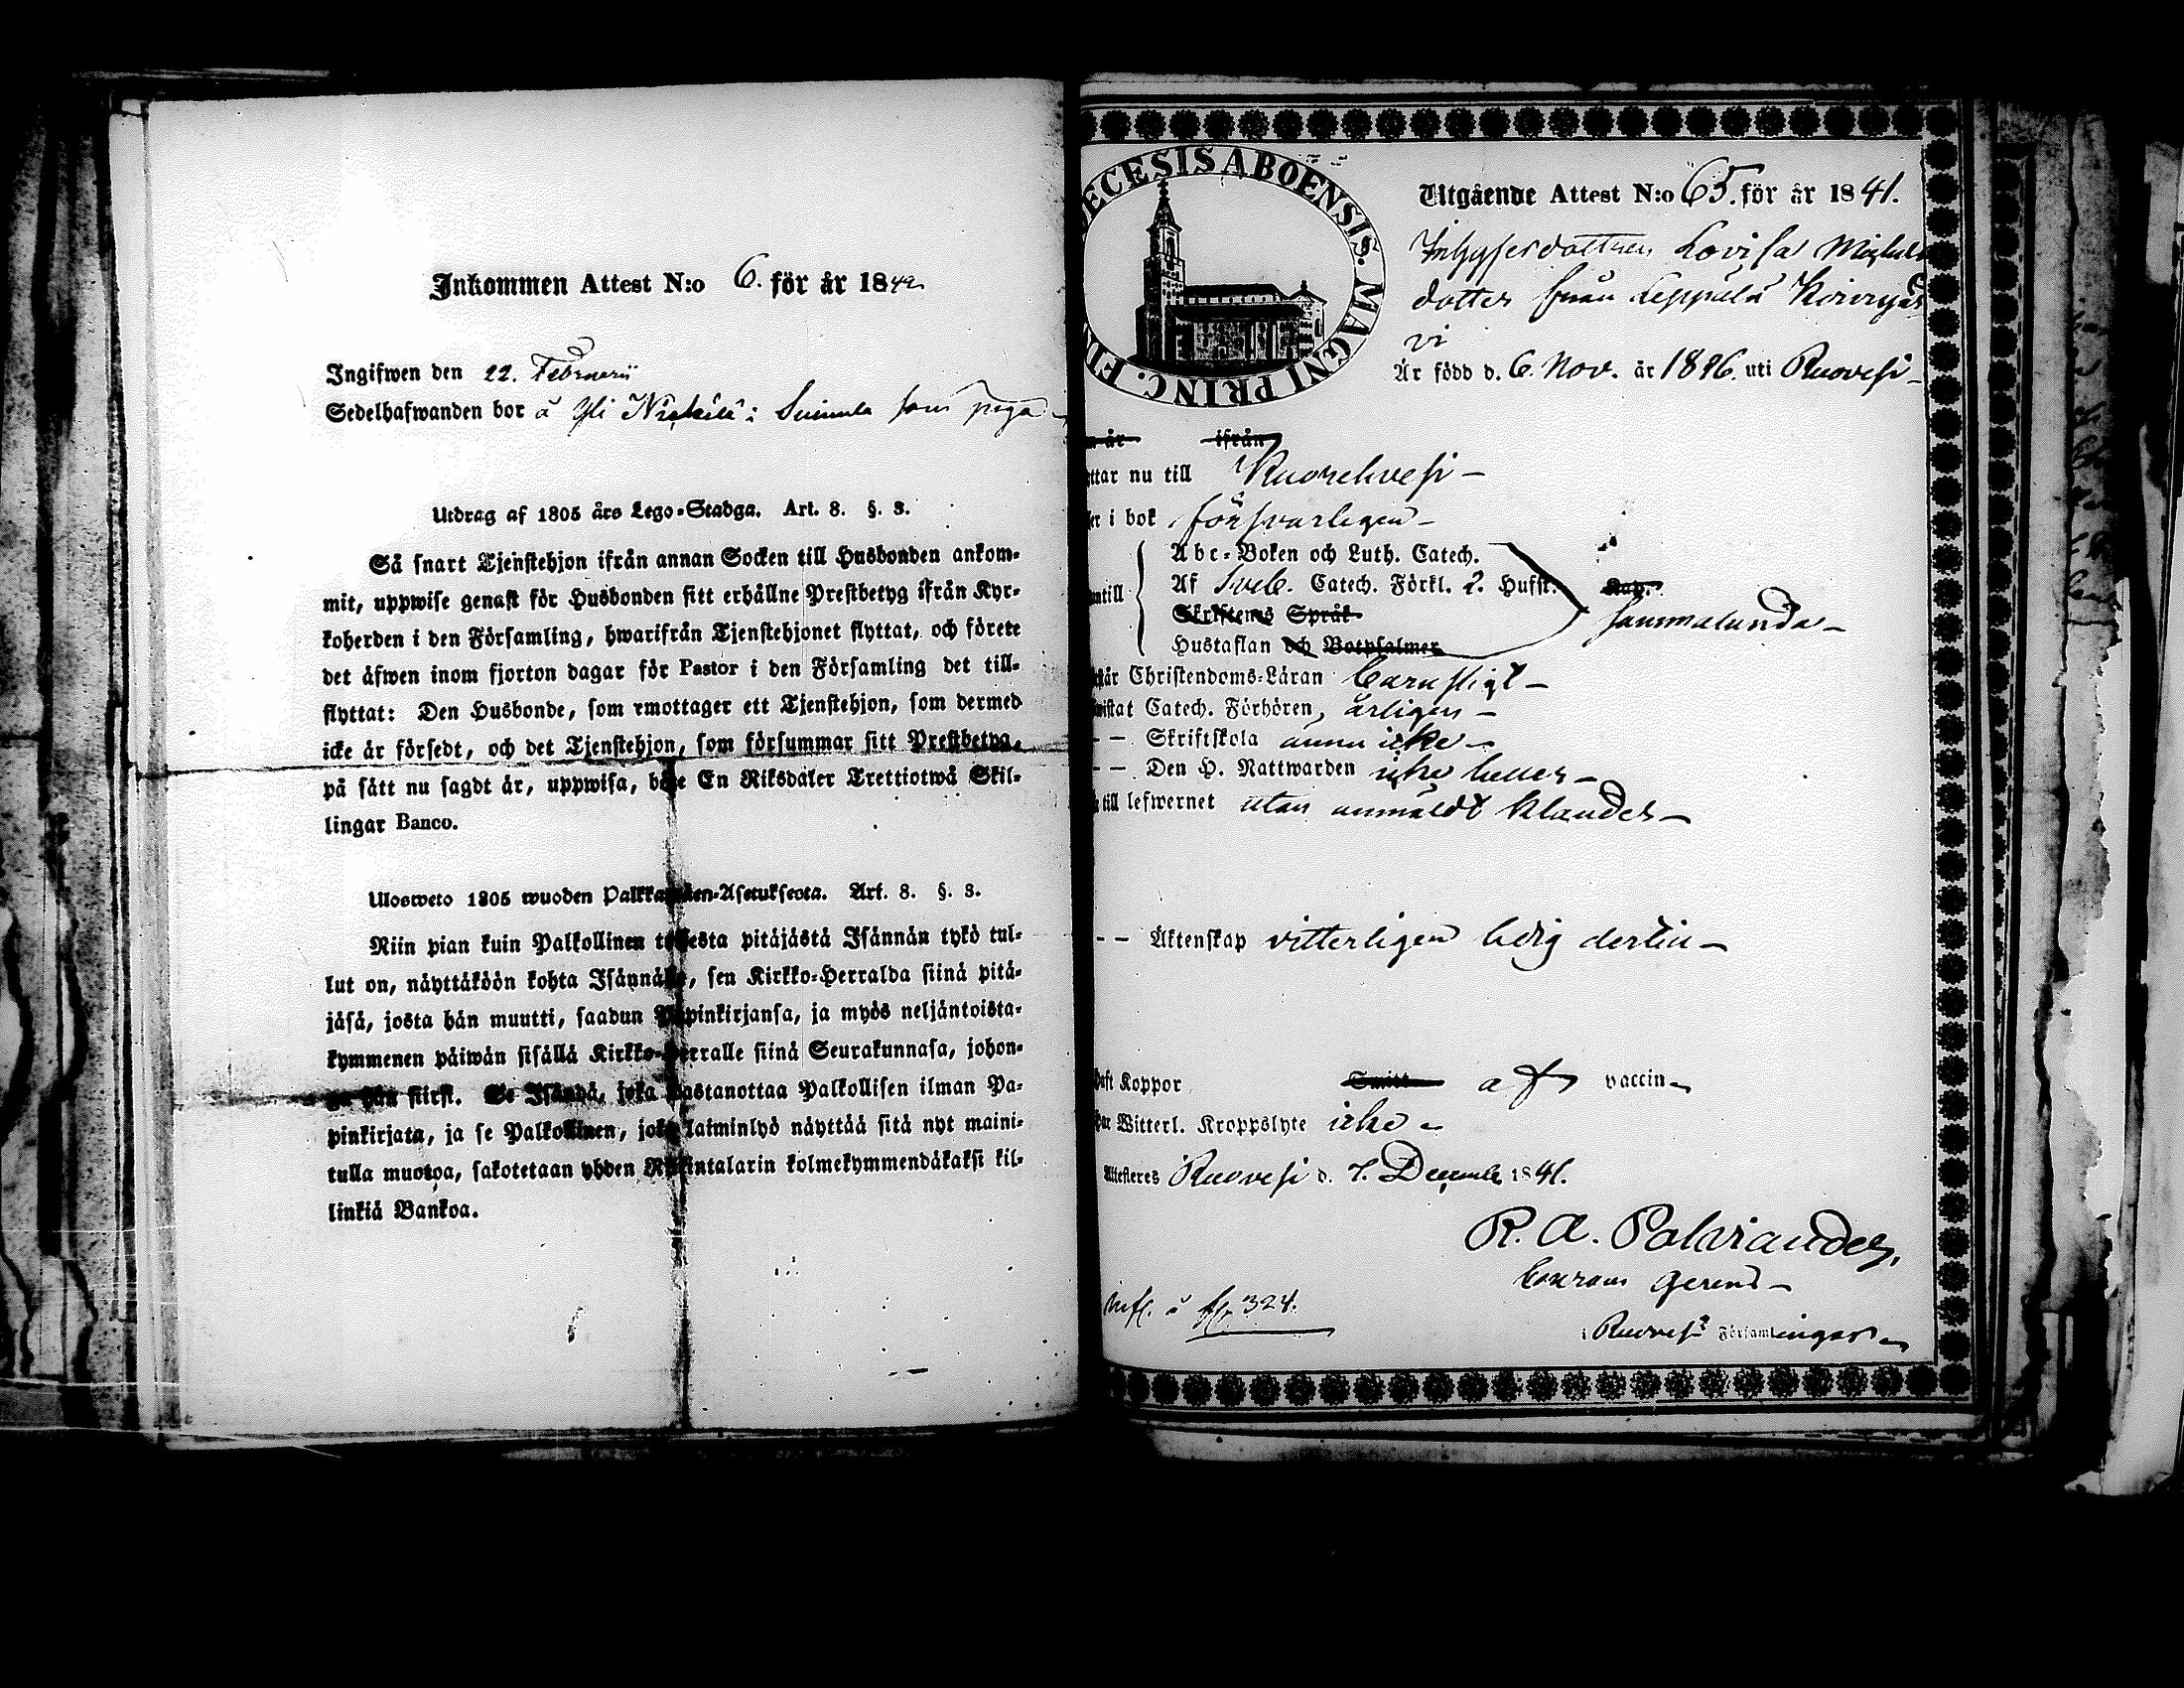 Inkommen Attest N:o 6. för år 1842
Ingifwen den 22. Februarii
Sedelhafwanden bor å Yli : som piga
Utdrag af 1805 års Lego-Stadga. Art. 8. §. 3.
Så snart Tjenstehjon ifrån annan Socken till Husbonden ankom-
mit, uppwise genast för Husbonden sitt erhållne Prestbetyg ifrån Kyr-
koherden i den Församling, hwarifrån Tjenstehjonet flyttat, och förete
det äfwen inom fjorton dagar för Pastor i den Församling det till-
flyttat: Den Husbonde, som emottager ett Tjenstehjon, som dermed
icke är försedt, och det Tjenstehjon, som försummar sitt Prestbetyg,
på sätt nu sagdt är, uppwisa, böte En Riksdaler Trettiotwå Skil-
lingar Banco.
Ulosweto 1805 wuoden Asetuksesta. Art. 8. §. 3.
Niin pian kuin Palkollinen toisesta pitäjästä Isännän tykö tul-
lut on, näyttäköön kohta Isännälle, sen Kirkko-Herralda siinä pitä-
jäsä, josta hän muutti, saadun Papinkirjansa, ja myös neljäntoista-
kymmenen päiwän sisällä Kirkko-Herralle siinä Seurakunnasa, johon-
ga hän siirst. Se Isändä, joka wastanottaa Palkollisen ilman Pa-
pinkirjata, ja se Palkollinen, joka laiminlyö näyttää sitä nyt maini-
tulla muotoa, sakotetaan yhden Riikintalarin kolmekymmendäkaksi kil-
linkiä Bankoa.
ECESIS ABOENSIS. MAGNI PRINC. FIN
Utgående Attest N:o 65. för år 1841.
Inhysesdottren Lovisa Michels
dotter från Leppälä Koverjär
vi
Är född d. 6. Nov. år 1826. uti Ruovesi
n år ifrån
ttar nu till Kuorehvesi
er i bok försvarligen
Abc-Boken och Luth. Catech.
Af Sveb. Catech. Förkl. 2. Hufst. Kap.
antill Skriftens Språk sammalunda
Hustaflan och Botpsalmer
tår Christendoms-Läran barnsligt
wistat Catech. Förhören, årligen
- - Skriftskola ännu icke
- - Den H. Nattwarden icke heller
till lefwernet utan anmäldt klander
- - Äktenskap vitterligen ledig dertill
haft Koppor Smitt af vaccin
har Witterl. Kroppslyte icke
Attesteras Ruovesi d. 7. December 1841.
R. A. Polviander,
gerens
Infl. å fl. 324.
i Ruovesi Församlingar